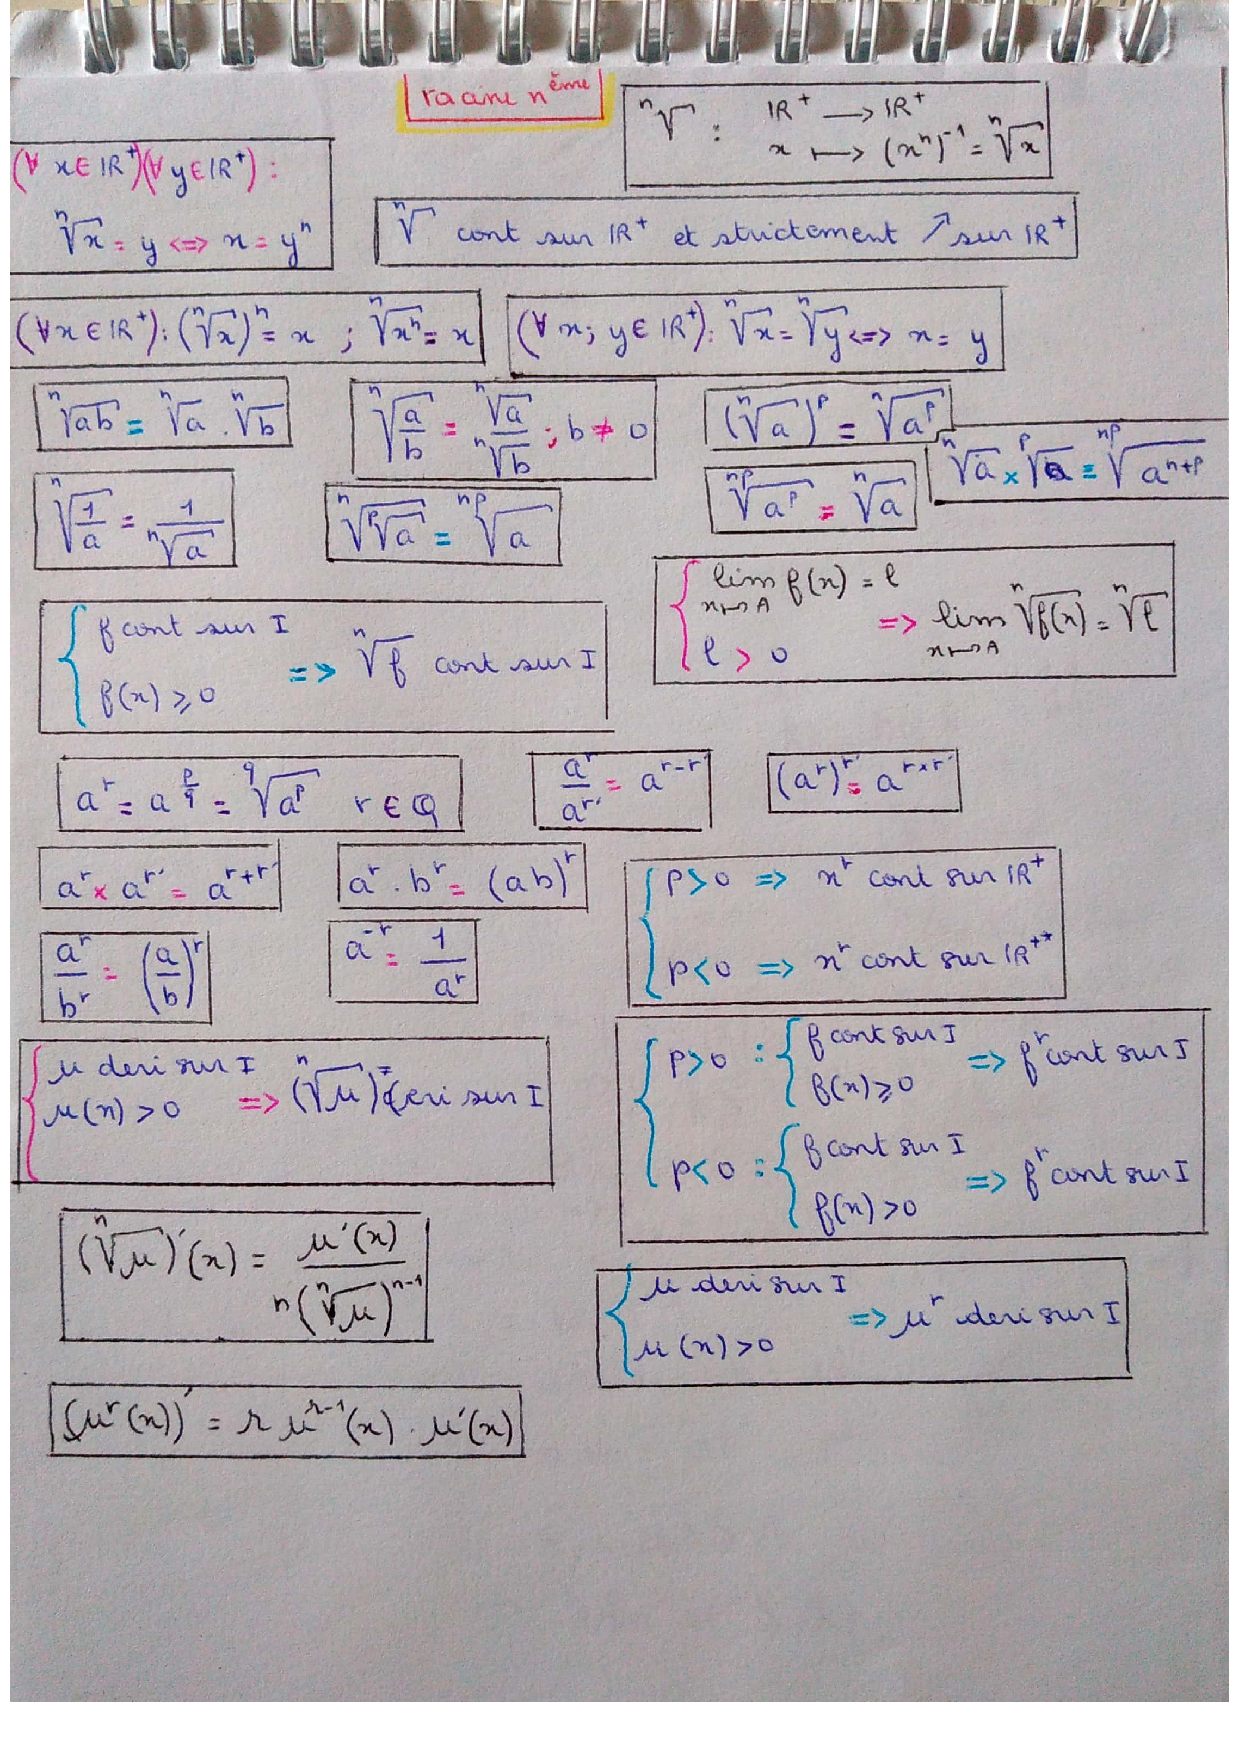 racine nème
ⁿ√ : IR⁺ → IR⁺
x ↦ (xⁿ)⁻¹ = ⁿ√x
(∀ x ∈ IR⁺)(∀ y ∈ IR⁺) :
ⁿ√x = y <=> x = yⁿ
ⁿ√ cont sur IR⁺ et strictement ↗ sur IR⁺
(∀x ∈ IR⁺) : (ⁿ√x)ⁿ = x ; ⁿ√xⁿ = x
(∀ x; y ∈ IR⁺) : ⁿ√x = ⁿ√y <=> x = y
ⁿ√ab = ⁿ√a . ⁿ√b
ⁿ√(a/b) = ⁿ√a / ⁿ√b ; b ≠ 0
(ⁿ√a)ᵖ = ⁿ√aᵖ
ⁿ√a × ᵖ√a = ⁿᵖ√aⁿ⁺ᵖ
ⁿ√(1/a) = 1 / ⁿ√a
ⁿ√ᵖ√a = ⁿᵖ√a
ⁿᵖ√aᵖ = ⁿ√a
{ lim f(x) = l
x↦A
l > 0
=> lim ⁿ√f(x) = ⁿ√l
x↦A
{ f cont sur I
f(x) ⩾ 0
=> ⁿ√f cont sur I
aʳ = a^(p/q) = ^q√aᵖ r ∈ Q
aʳ / aʳ' = aʳ⁻ʳ'
(aʳ)ʳ' = aʳˣʳ'
aʳ × aʳ' = aʳ⁺ʳ'
aʳ . bʳ = (ab)ʳ
{ p > 0 => xʳ cont sur IR⁺
p < 0 => xʳ cont sur IR⁺*
aʳ / bʳ = (a/b)ʳ
a⁻ʳ = 1 / aʳ
{ p > 0 : { f cont sur I
f(x) ⩾ 0
=> fʳ cont sur I
p < 0 : { f cont sur I
f(x) > 0
=> fʳ cont sur I
{ u deri sur I
u(x) > 0 => (ⁿ√u) = deri sur I
(ⁿ√u)'(x) = u'(x) / n(ⁿ√u)ⁿ⁻¹
{ u deri sur I
u(x) > 0
=> uʳ deri sur I
(uʳ(x))' = r uʳ⁻¹(x) . u'(x)